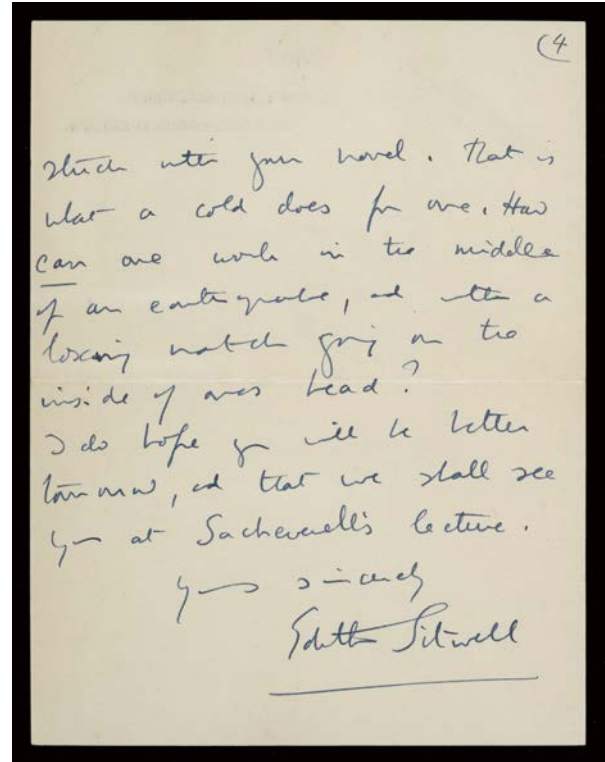 (4
stuck with your novel. That is
what a cold does for one. How
can one work in the middle
of an earthquake, and with a
boxing match going on the
inside of ones head?
I do hope you will be better
tomorrow, and that we shall see
you at Sacheverell's lecture.
yours sincerely
Edith Sitwell